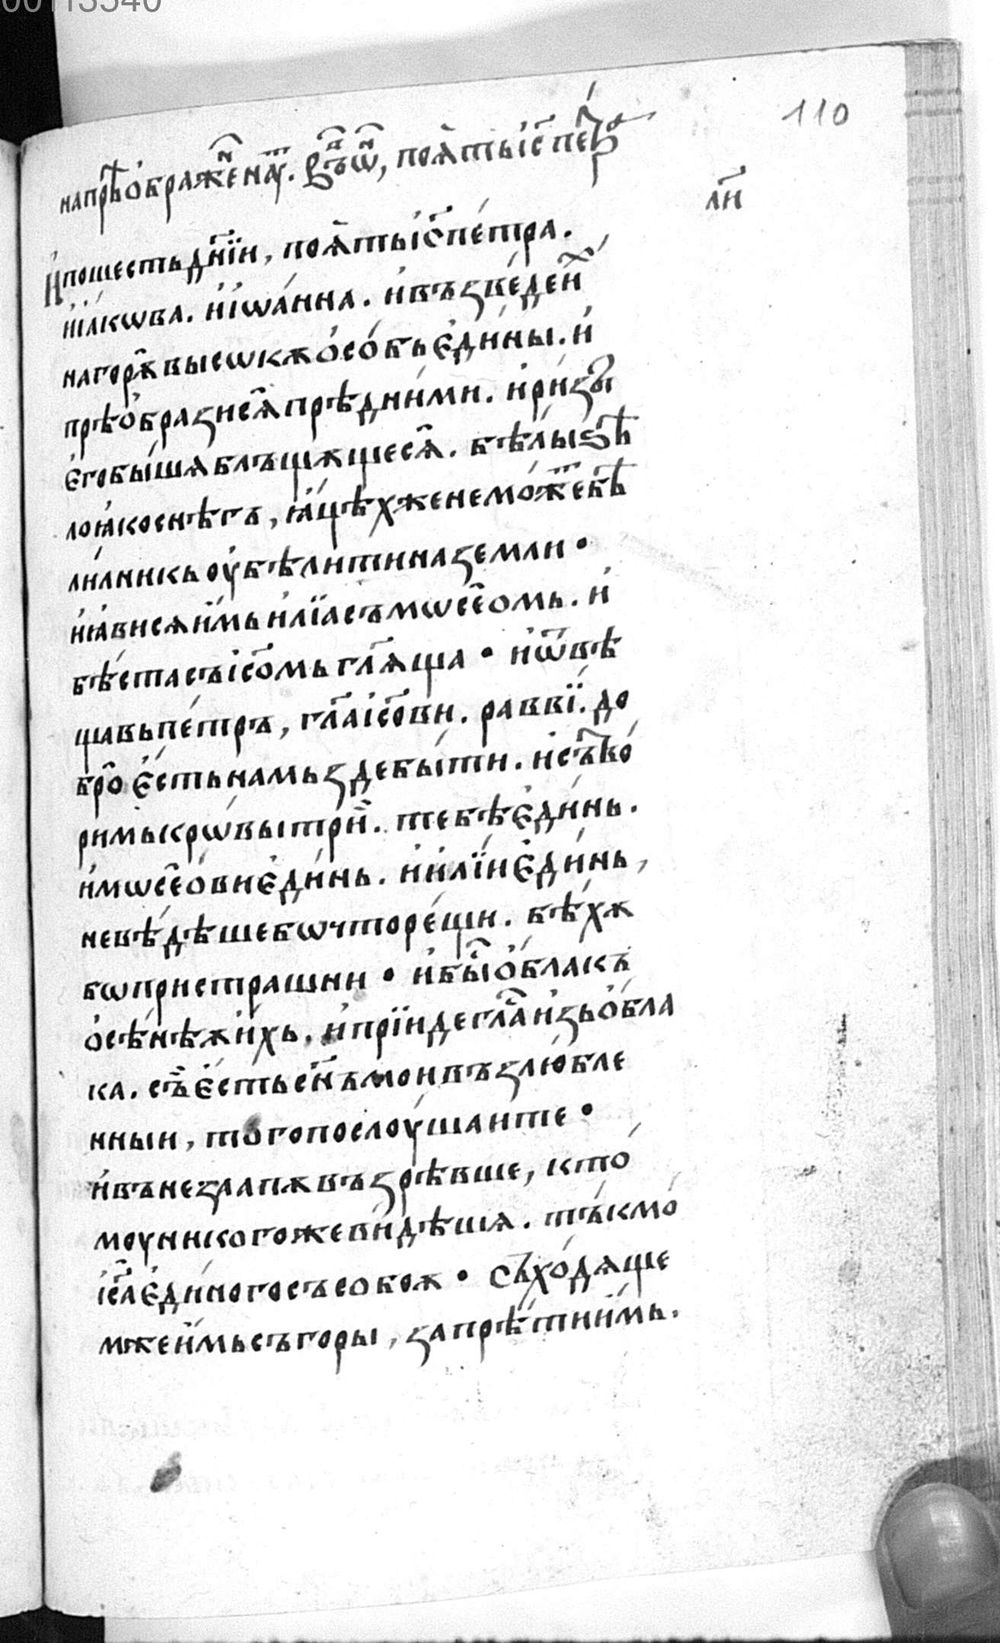 00113540
110
напрѣѡбражен꙯їꙋ. въ ѿ, поѧ́тъ і҃с пе
л҃и
И҆ по шестъ дн҃їи, поѧ́тъ і҃с петра.
и҆ іа́кѡва. и҆ і҆ѡа́нна. и҆ възве́де иⷯ
на горѫ высѡкѫ ѻ҆со́бь є҆ди́ны. и҆
прѣѡ҆бразисѧ прѣд ни́ми. и҆ ри́зы
є҆го бы́шѧ блъщѧщесѧ. бѣ́лы ѕѣ
ло ꙗ҆ко снѣгъ, ꙗ҆цѣ́хже не мо́жеⷮ бѣ
ли́лникь ᲂу҆бѣлити на земли ·
и҆ ꙗ҆ви сѧ и҆́мь и҆лїа съ мѡѵсеѡмь. и҆
бѣ́ста съ і҆с҃омь гл҃ѧща · и҆ ѿвѣ
щавь пе́тръ, гл҃а і҆с҃ови. равві́. до
бро є҆́сть намь зде бы́ти. и҆ сътво́
римь крѡ́вы три̏. тебѣ є҆ди́нь.
и҆ мѡѵсео́ви є҆ди́нь. и҆ и҆лїи є҆ди́нь,
не вѣ́дѣше бѡ что рещи. бѣ́хѫ
бѡ пристрашни · и҆ бы́ⷭ ѻ҆́блакъ
ѻ҆сѣнѣѫ и҆́хь. и҆ прїиде гла́ⷭ и҆зь ѻ҆́бла
ка. съ̏ є҆́сть сн҃ъ мои възлю́бле
нныи, того послᲂу́шаите ·
и҆ вънезаапѫ възрѣвше, кто́
мᲂу никогоже ви́дѣшѧ. тъ́кмо
і҆с҃а є҆ди́ного съ собоѫ · Съхо́дѧще
мже и҆́мь съ горы, запрѣ́ти и҆́мь.